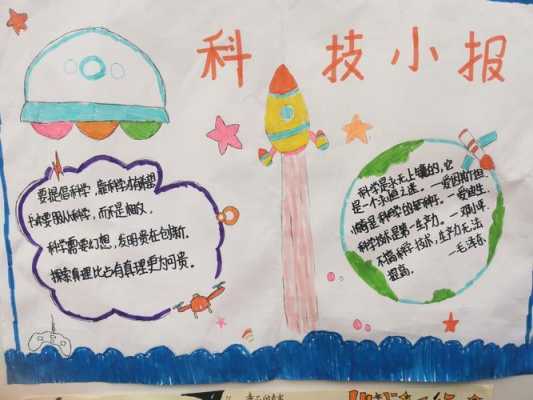 科技小报
要提倡科学,靠科学才有希望
大家要服从科学,而不是
科学需要幻想,发明贵在创新.
探索真理比占有真理更为可贵。
科学是永无止境的,它
是一个永恒之迷。——爱因斯坦.
惊奇是科学的种子。——爱迪生.
科学技术是第一生产力。——邓小平
不搞科学技术,生产力无法
提高。 ——毛泽东.